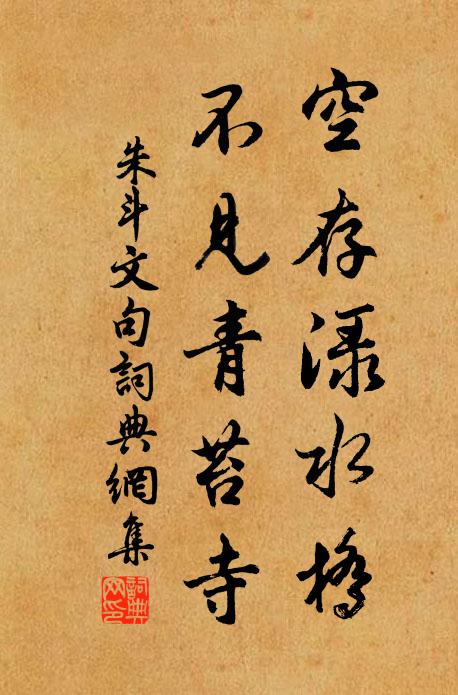 空存渌水橋
不見青苔寺
朱斗文句詞典網集
詞典網印